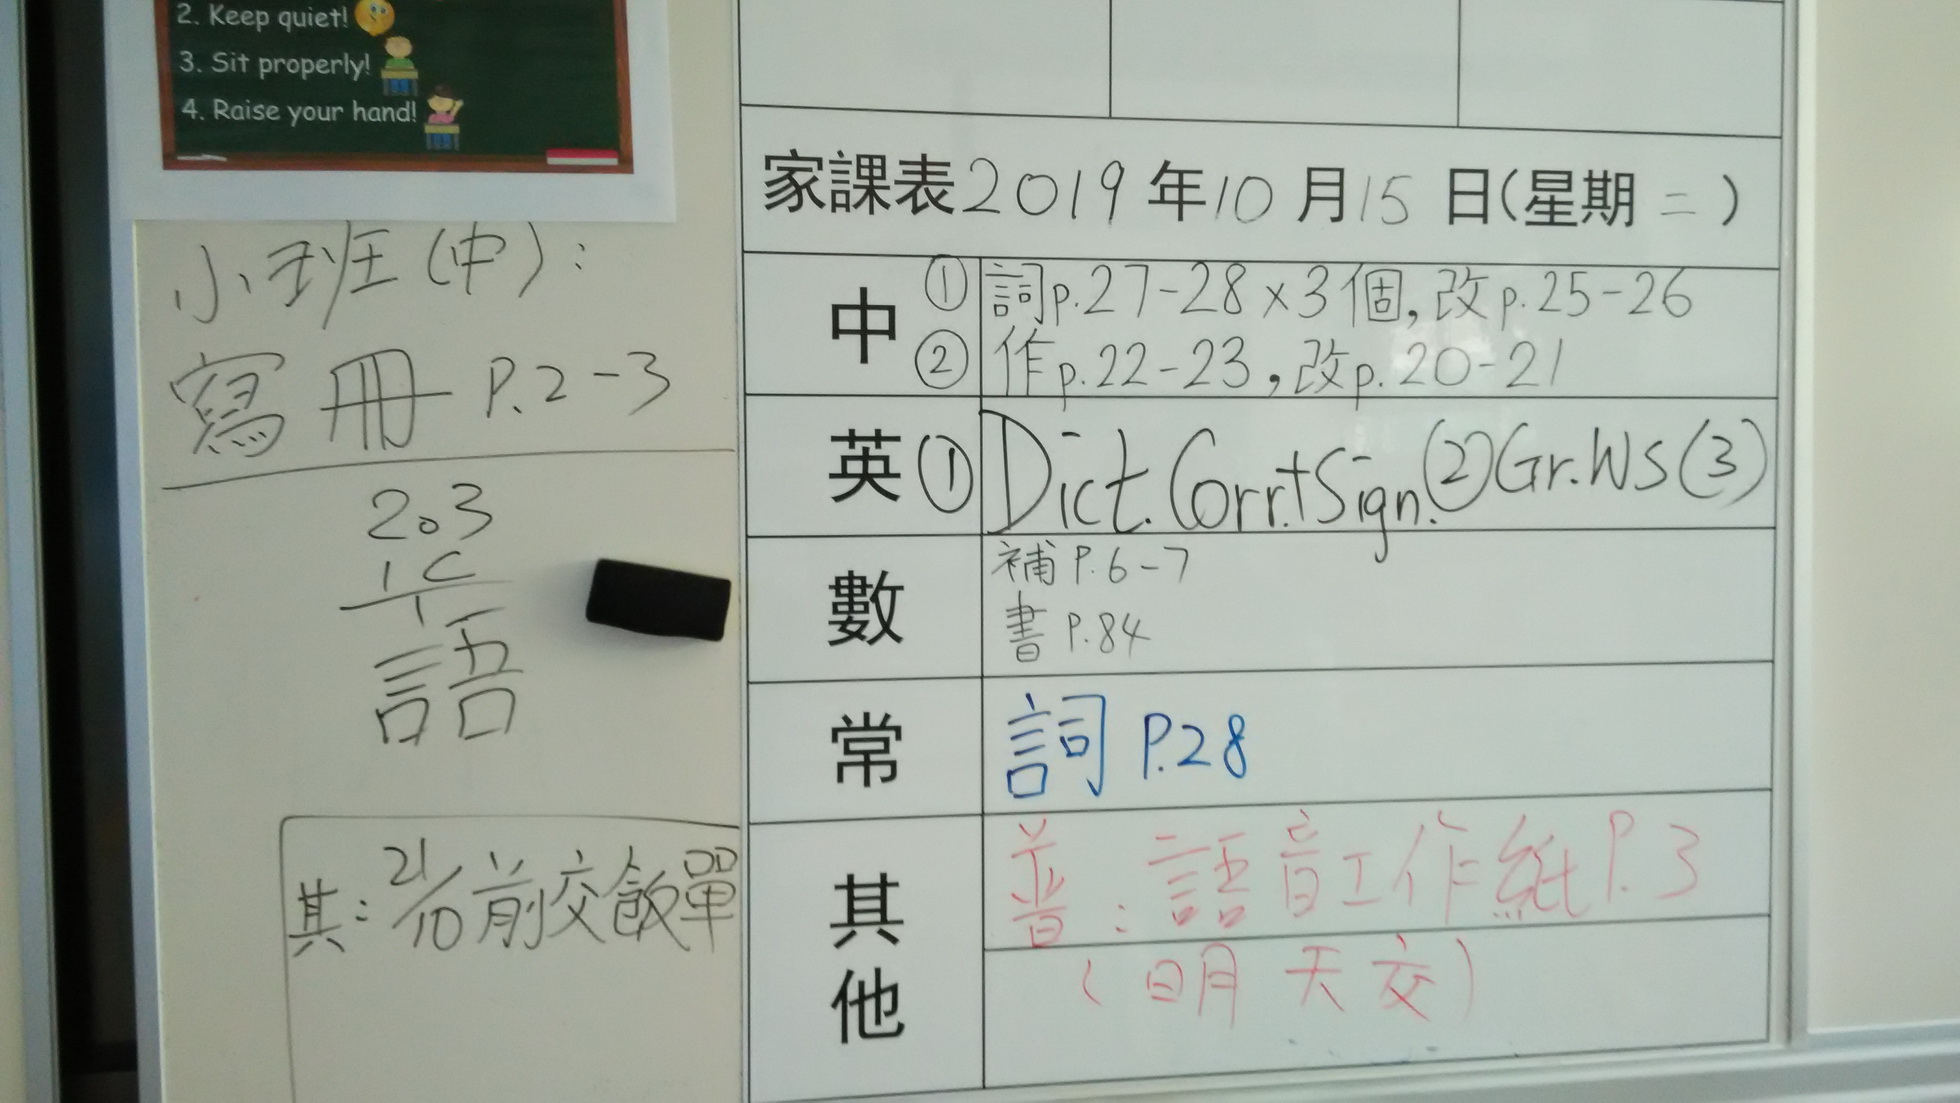 2. Keep quiet!
3. Sit properly!
4. Raise your hand!
小班(中):
寫冊 P.2-3
203
語
其: 21/10 前交飯單
家課表 2019 年 10 月 15 日(星期 二)
中 ① 詞p.27-28×3個,改p.25-26
② 作p.22-23,改p.20-21
英 ① Dict. Corr.+Sign. ② Gr.WS(3)
數 補 P.6-7
書 P.84
常 詞 P.28
其他 普:語音工作紙 P.3
(明天交)